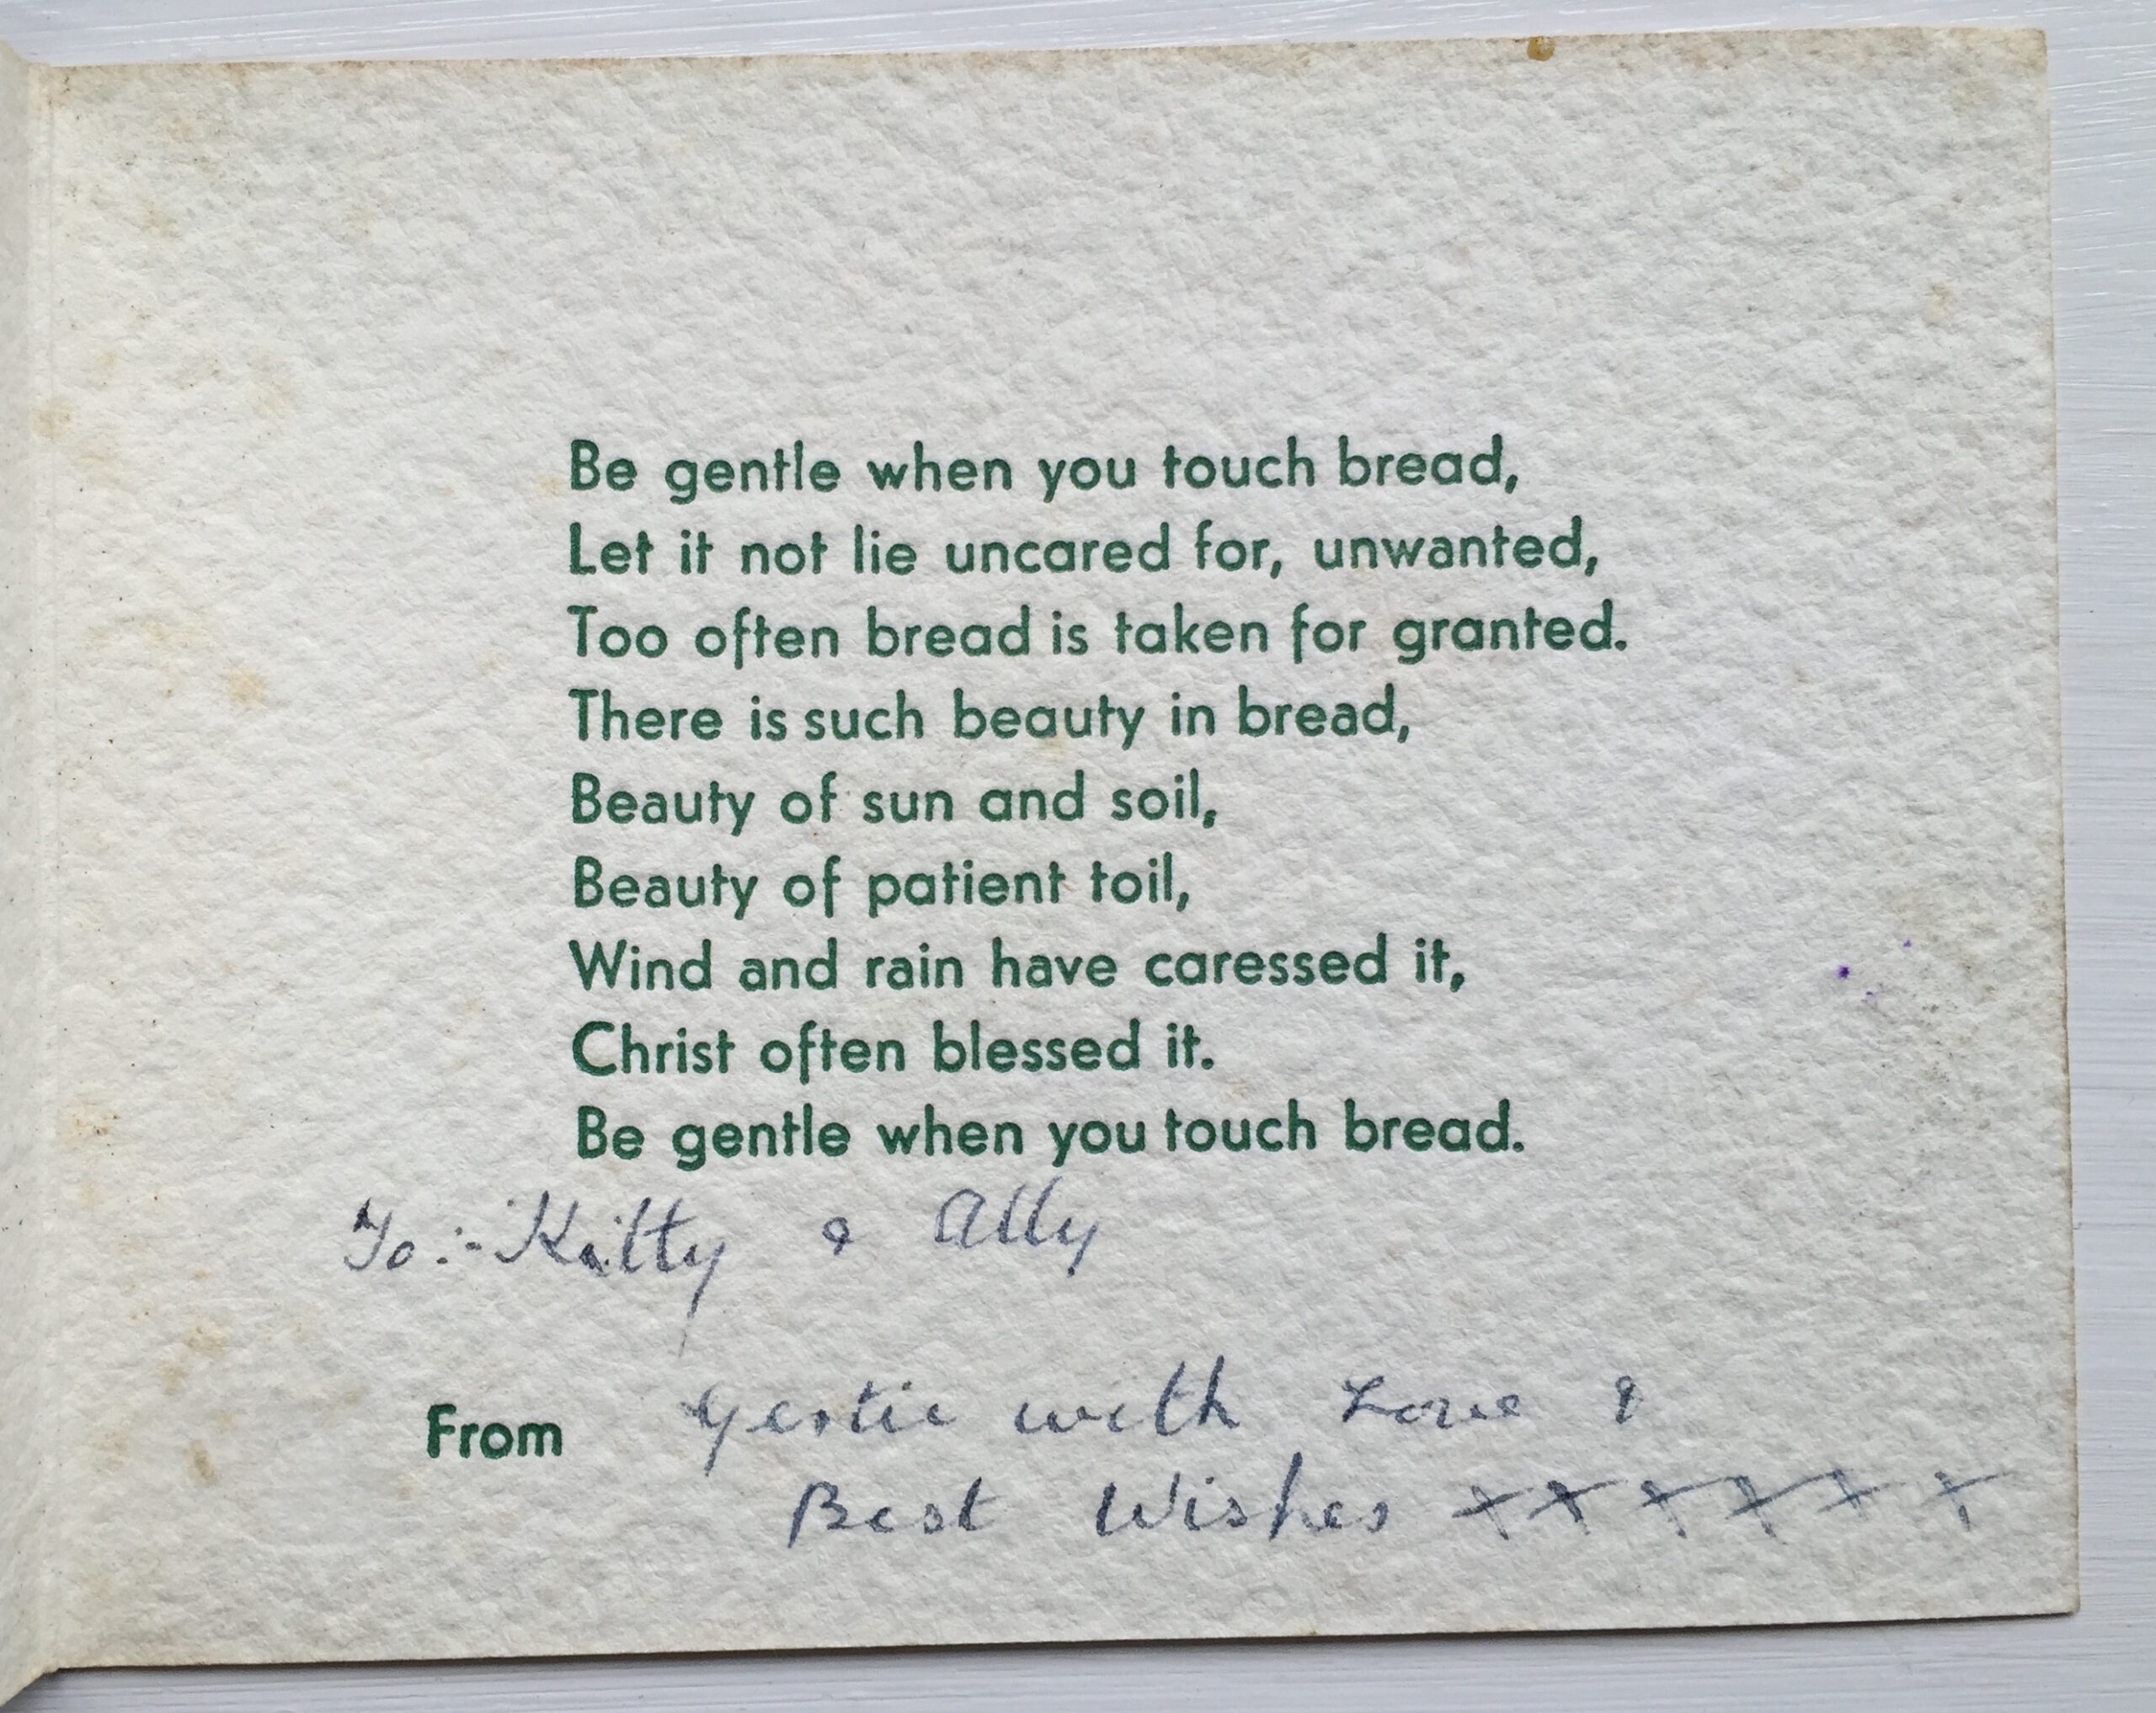 Be gentle when you touch bread,
Let it not lie uncared for, unwanted,
Too often bread is taken for granted.
There is such beauty in bread,
Beauty of sun and soil,
Beauty of patient toil,
Wind and rain have caressed it,
Christ often blessed it.
Be gentle when you touch bread.
To :- Kitty & Ally
From Gertie with Love &
Best Wishes xxxxxx